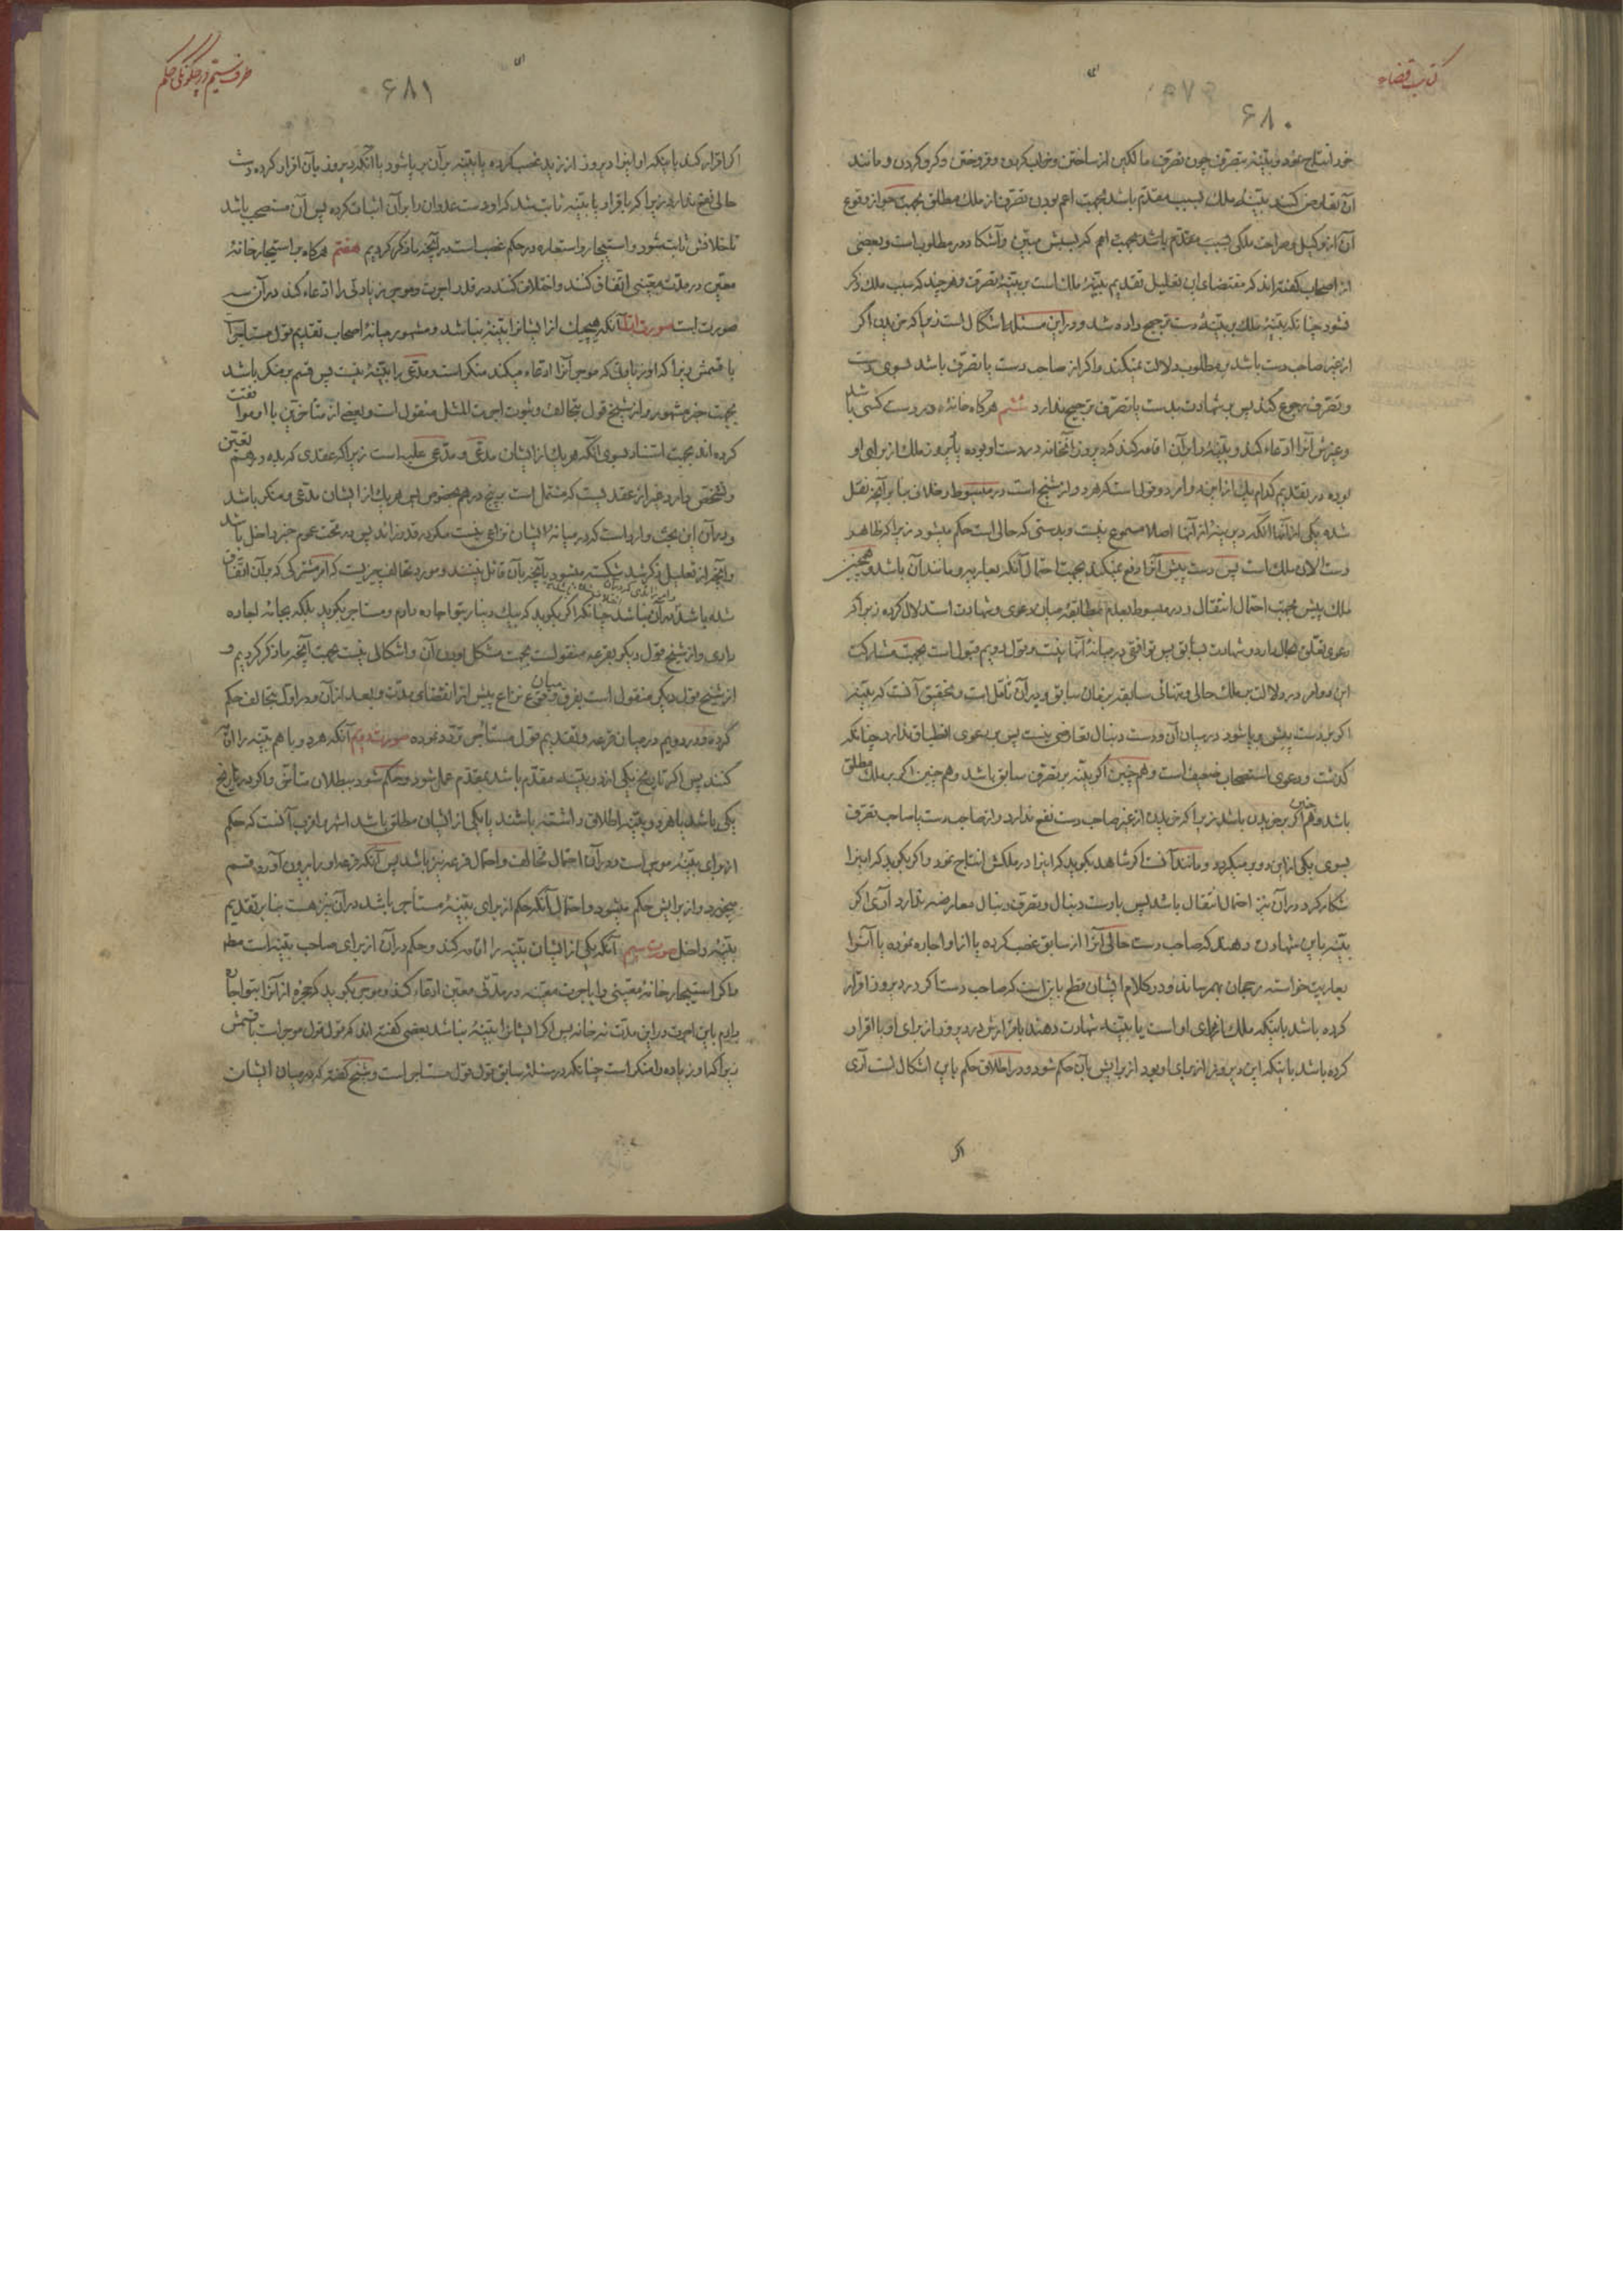 کتاب قضاء
۶۸۰
خود انتاج نمود و بیّنهٔ بتصرف چون تصرف مالکین از ساختن و خراب کردن و فروختن و گرو کردن و مانند
آن تعارض کنند بیّنهٔ ملک بسبب مقدّم باشد بجهت اعم بودن تصرف از ملک مطلق بجهت جواز وقوع
آن از وکیل و صراحت ملکی بسبب مقدّم باشد بجهت اعم که بسببش مبیّن و آشکار و در مطلوب است و بعضی
از اصحاب گفته‌اند که مقتضای این تعلیل تقدیم بیّنهٔ ملک است بر بیّنهٔ تصرف و هر چند که سبب ملک ذکر
نشود چنانکه بیّنهٔ ملک بر بیّنهٔ دست ترجیح داده شد و در این مسئله اشکال است زیرا که خریدن اگر
از غیر صاحب دست باشد بر مطلوب دلالت نمیکند و اگر از صاحب دست یا تصرف باشد بسوی دست
و تصرف رجوع کند پس شهادت بدست یا تصرف ترجیح ندارد ششم هرگاه خانهٔ در دست کسی باشد
و غیرش آنرا ادّعاء کند و بیّنهٔ را بر آن اقامه کند که دیروز آنخانه در دست او بوده یا دیروز ملک از برای او
بوده در تقدیم کدام یک از این دو امر دو قول است که هر دو از شیخ است در مبسوط و خلاف بنا بر آنچه نقل
شده یکی از آنها آنکه این بیّنه از آنها اصلا مسموع نیست و بدستی که حالی است حکم میشود زیرا که ظاهر
دست الان ملک است پس دست پیش آنرا دفع نمیکند بجهت احتمال آنکه بعاریه و مانند آن باشد و همچنین
ملک پیش بجهت احتمال انتقال و در مبسوط بعدم مطابقه میان دعوی و شهادت استدلال کرده زیرا که
دعوی تعلّق بحال دارد و شهادت بسابق پس توافقی در میانهٔ آنها نیست و قول دویم قبول است بجهت مشارکت
این دو امر در دلالت بر ملک حالی و تنهائی سابقه بزمان سابق و در آن تأمّل است و تحقیق آنست که بیّنه
اگر بدست پیشی بپا شود در میان آن و دست دنبال تعارضی نیست پس بر دعوی انطباق ندارد چنانکه
گذشت و دعوی استصحاب ضعیف است و هم چنین اگر بیّنه بر تصرف سابق باشد و هم چنین اگر بر ملک مطلق
باشد و هم چنین اگر بر خریدن باشد زیرا که خریدن از غیر صاحب دست نفع ندارد و از صاحب دست یا صاحب تصرف
بسوی یکی از این دو بر میگردد و مانند آنست اگر شاهد بگوید که اینرا در ملکش انتاج نمود و اگر بگوید که اینرا
شکار کرد در آن نیز احتمال انتقال باشد پس با دست دنبال و تصرف دنبال معارضه ندارد آری اگر
بیّنه باین شهادت دهند که صاحب دست حالی آنرا از سابق غصب کرده یا از او اجاره نموده یا آنرا
بعاریت خواسته رجحان بهم رساند و در کلام ایشان قطع باین است که صاحب دست اگر در دیروز اقرار
کرده باشد باینکه ملک از برای او است یا بیّنه شهادت دهند باقرارش در دیروز از برای او یا اقرار
کرده باشد باینکه این دیروز از برای او بود از برایش بآن حکم شود و در اطلاق حکم باین اشکال است آری
اگر
طرف ششم در چگونگی حکم
۶۸۱
اگر اقرار کند باینکه او اینرا دیروز از زید غصب کرده یا بیّنه بر آن بر پا شود یا آنکه دیروز بآن اقرار کرده دست
حالی نفع ندارد زیرا که باقرار یا بیّنه ثابت شد که او دست عدوان را بر آن اثبات کرده پس آن مستصحب باشد
تا خلافش ثابت شود و استیجار و استعاره در حکم غصب است در آنچه ما ذکر کردیم هفتم هرگاه بر استیجار خانهٔ
معیّن در مدّت معیّنی اتّفاق کنند و اختلاف کنند در قدر اجرت و موجر زیادتی را ادّعاء کند در آن سه
صورت است صورت اوّل آنکه هیچیک از ایشانرا بیّنهٔ نباشد و مشهور میانهٔ اصحاب تقدیم قول مستاجر است
با قسمش زیرا که او زیادتی که موجر آنرا ادّعاء میکند منکر است و مدّعی را بیّنهٔ نیست پس قسم بر منکر باشد
بجهت خبر مشهور و از شیخ قول بتحالف و ثبوت اجرت المثل منقول است و بعضی از متأخّرین با او موافقت
کرده‌اند بجهت استناد بسوی آنکه هر یک از ایشان مدّعی و مدّعی علیه است زیرا که عقدی که بده درهم تعیّن
و تشخّص دارد غیر از عقدیست که مشتمل است بر پنج درهم بخصوص پس هر یک از ایشان مدّعی و منکر باشد
و در آن این بحث وارد است که در میانهٔ ایشان نزاعی نیست مگر در قدر زائد پس در تحت عموم خبر داخل باشد
و آنچه از تعلیل ذکر شد شکسته میشود بآنچه بآن قائل نیستند و مورد تحالف چیزیست که امر مشترکی که بر آن اتّفاق
شده باشد در آن نباشد چنانکه اگر بگوید که بیک دینار بتو اجاره دادم و مستاجر بگوید بلکه بجامه اجاره
دادی و از شیخ قول دیگر بقرعه منقولست بجهت مشکل بودن آن و اشکالی نیست بجهت آنچه ما ذکر کردیم و
از شیخ قول دیگر منقول است بفرق میان وقوع نزاع پیش از انقضای مدّت و بعد از آن و در اوّل بتحالف حکم
کرده و در دویم در میان قرعه و تقدیم قول مستاجر تردّد نموده صورت دویم آنکه هر دو با هم بیّنه را اقامه
کنند پس اگر تاریخ یکی از دو بیّنه مقدّم باشد بمقدّم عمل شود و حکم شود ببطلان متأخّر و اگر در تاریخ
یکی باشند یا هر دو بیّنه اطلاق داشته باشند یا یکی از ایشان مطلق باشد اشهر و اقرب آنست که حکم
از برای بیّنهٔ موجر است و در آن احتمال تحالف و احتمال قرعه نیز باشد پس آنکه قرعه او را بیرون آورد قسم
میخورد و از برایش حکم میشود و احتمال آنکه حکم از برای بیّنهٔ مستأجر باشد در آن نیز هست بنا بر تقدیم
بیّنهٔ داخل صورت سیم آنکه یکی از ایشان بیّنه را اقامه کند و حکم در آن از برای صاحب بیّنه است مطلقا
و اگر استیجار خانهٔ معیّنی را باجرت معیّنه در مدّتی معیّن ادّعاء کند و موجر بگوید که حجرهٔ از آنرا بتو اجاره
دادم باین اجرت در این مدّت نه خانه پس اگر ایشانرا بیّنهٔ نباشد بعضی گفته‌اند که قول قول موجر است با قسمش
زیرا که او زیاده را منکر است چنانکه در مسئلهٔ سابق قول قول مستاجر است و شیخ گفته که در میان ایشان